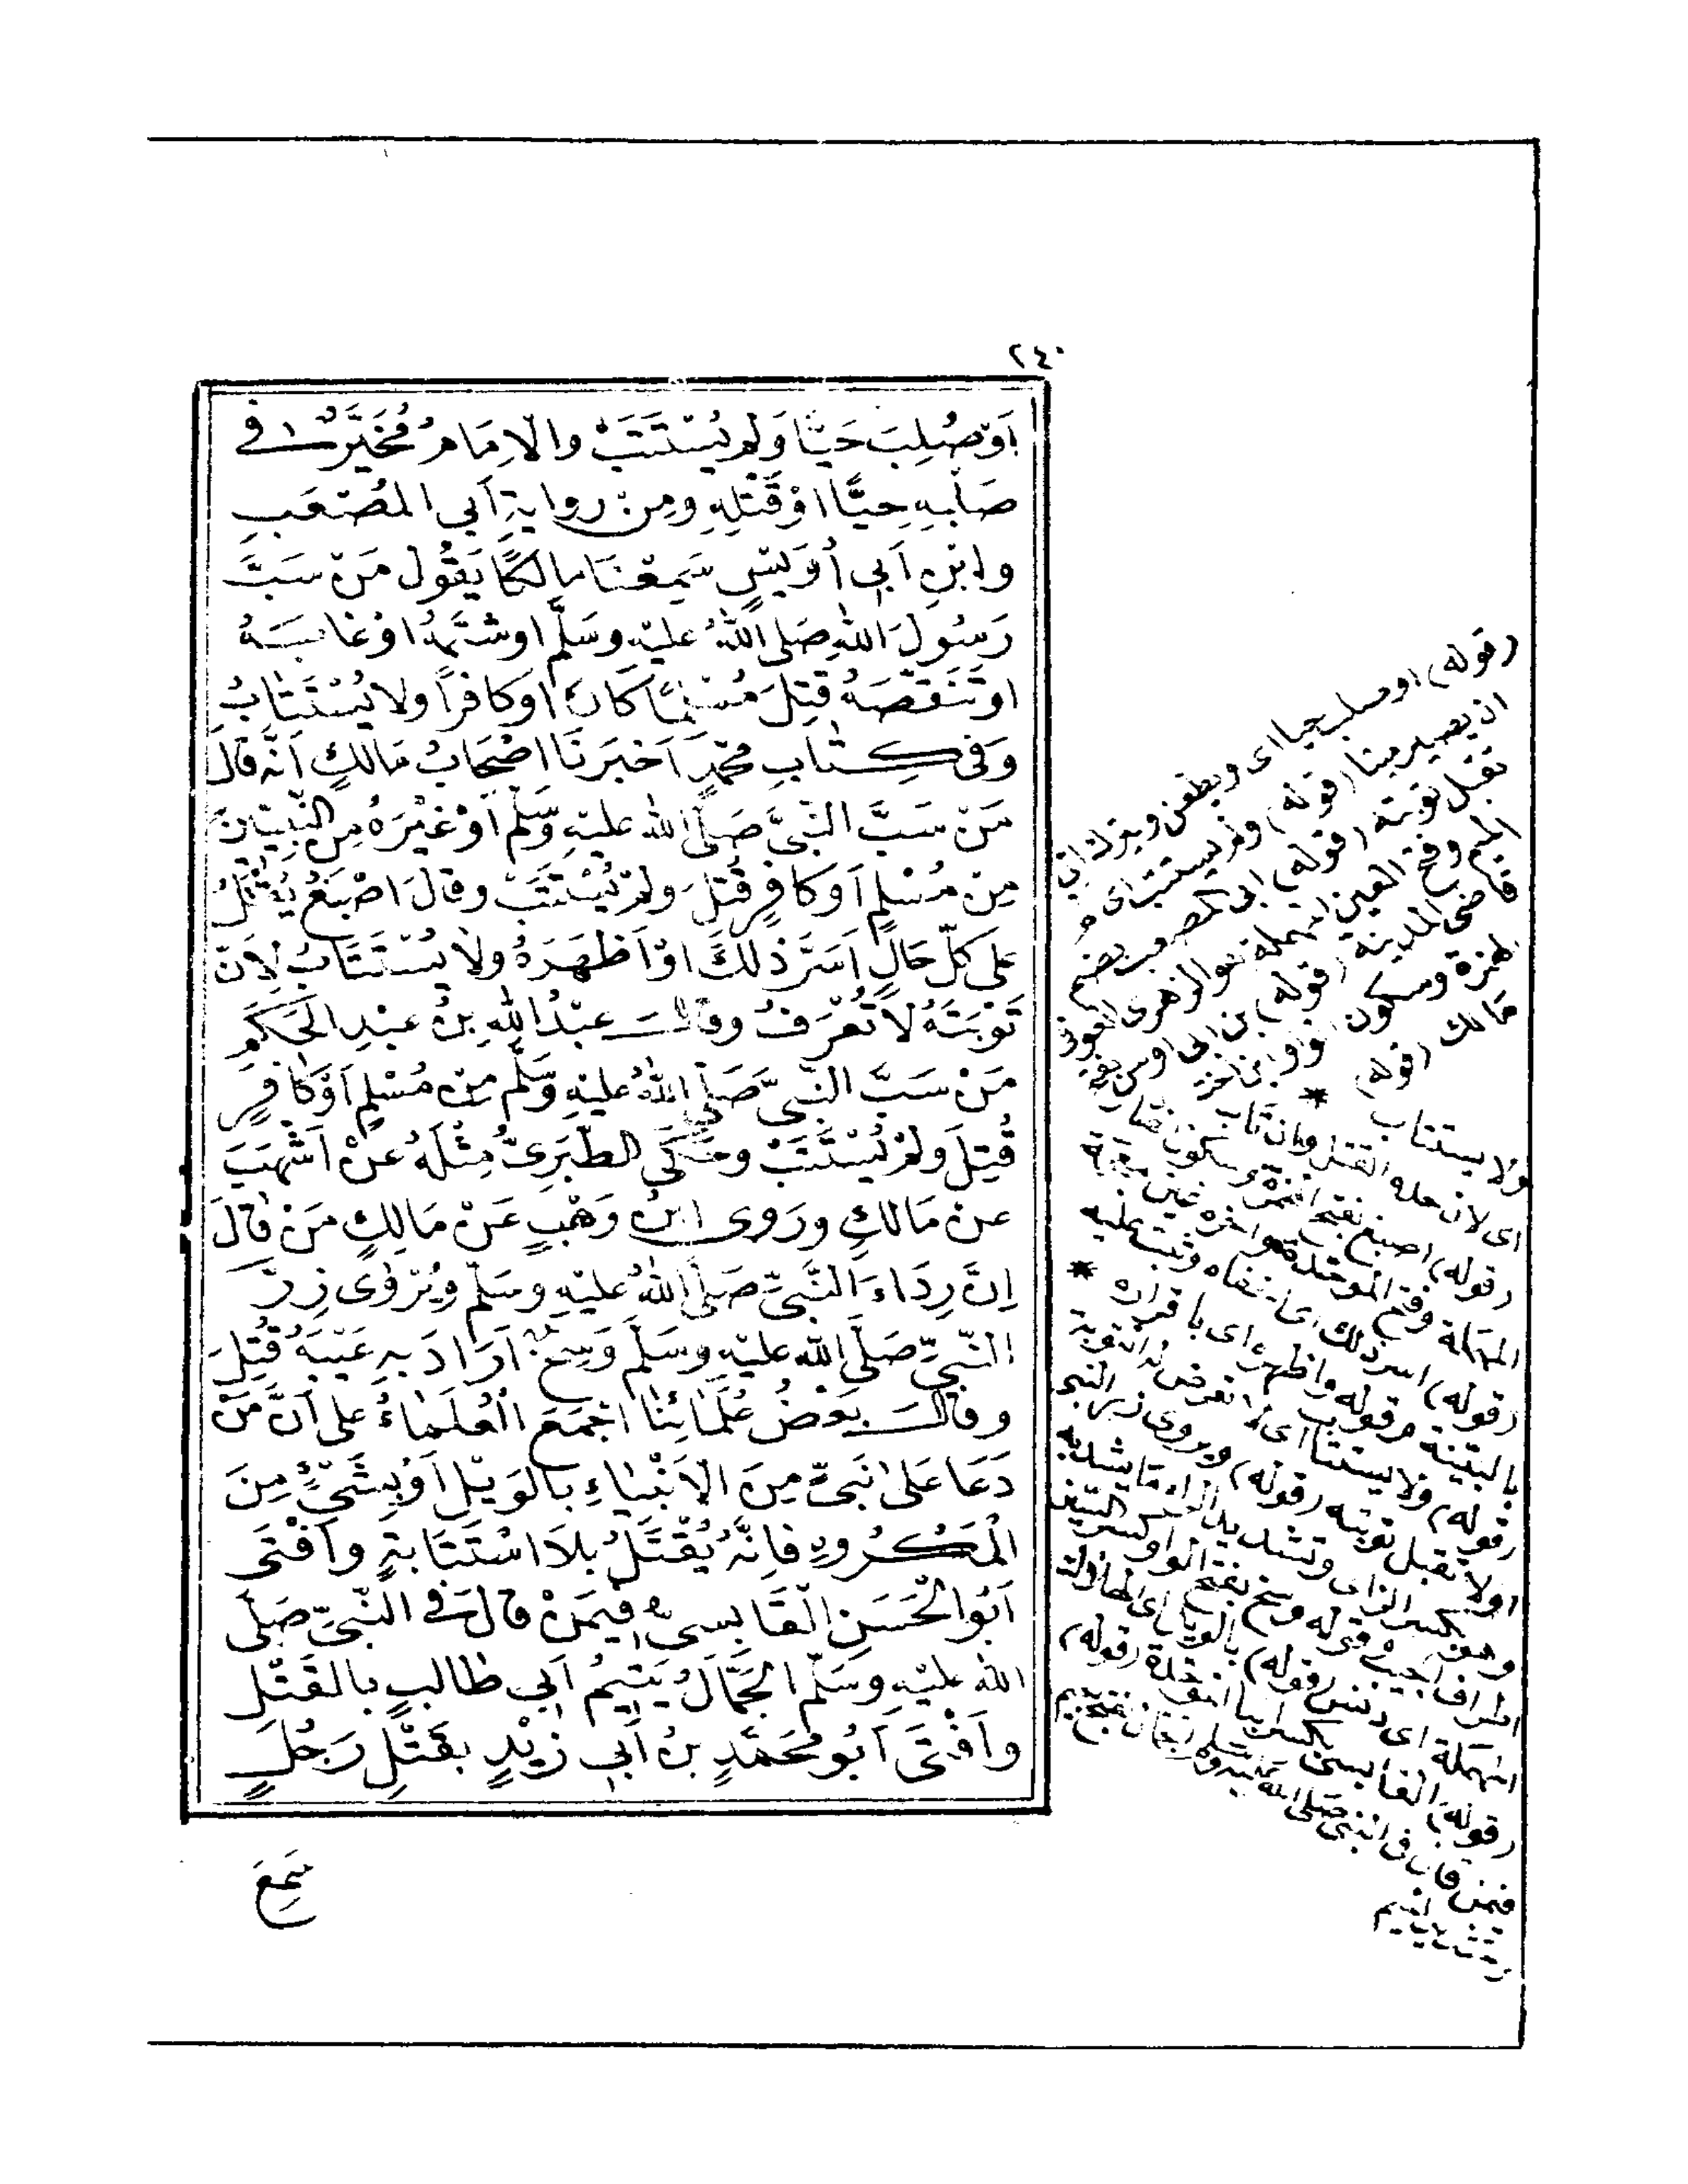 ٢٤٠
اَوْصُلِبَ حَيًّا وَلم يُسْتَتَبْ والاِمَامُ مُخَيَّرٌ فى
صَلْبِهِ حيًّا اوْ قَتْلِهِ ومِنْ روايةِ اَبى المُصْعَبِ
وابْنِ اَبى اُوَيْسٍ سَمِعْنَا مالِكًا يَقُول مَنْ سَبَّ
رَسُولَ اللهِ صَلى اللهُ عليْهِ وسَلَّم اوشتَمهُ اوْ عَابَهُ
اوتَنَقَّصَهُ قُتِلَ مُسْلِمًا كَانَ اوكافرًا ولا يُسْتَتَابُ
وَفى كِتابِ محمّدٍ اَخبَرَنَا اصْحَابُ مَالكٍ اَنَّهُ قالَ
مَنْ سَبَّ النَّبىَّ صَلَّى الله عليْهِ وَسَلَّم اَوْغيْرَهُ مِنَ النَّبِيّينَ
مِنْ مُسْلِمٍ اَوكافِرٍ قُتلَ ولمْ يُسْتَتَبْ وقالَ اصْبَغُ يُقْتَلُ
عَلى كلّ حَالٍ اَسَرَّ ذلكَ اوْ اَظهَرَهُ ولا يُسْتَتَابُ لِاَنّ
تَوْبَتَهُ لَا تُعْرَفُ وقالَ عبْدُ اللهِ بنُ عبْدِ الحَكَمِ
مَنْ سَبَّ النَّبىَّ صَلى اللهُ عليْهِ وسَلَّم مِنْ مُسْلِمٍ اَوْكَافِرٍ
قُتِلَ ولمْ يُسْتَتَبْ وحَكَى الطَّبَرِىُّ مِثْلَهُ عنْ اَشْهَبَ
عن مَالكٍ ورَوى ابنُ وَهْبٍ عَنْ مَالِكٍ مَنْ قالَ
اِنَّ رِدَاءَ النَّبىِّ صَلَّى اللهُ عليْهِ وسَلَّم ويُرْوٰى زِرَّ
النَّبىِّ صَلَّى الله عليْهِ وسَلَّم وَسِخٌ اَرَادَ بهِ عَيْبَهُ قُتِلَ
وقالَ بعَوْضُ عُلَمَائِنا اجْمَعَ العُلَمَاءُ عَلى اَنَّ مَنْ
دَعَا عَلى نَبىٍّ مِنَ الاَنْبْيَاءِ بالوَيْلِ اَوْ بِشَىْءٍ مِنَ
المَكْرُوهِ فاِنَّهُ يُقْتَلُ بلَا اسْتَتَابةٍ وَاَفْتَى
اَبُو الحَسَنِ القَابِسىُّ فيمَنْ قالَ فى النَّبىِّ صَلّى
الله عليْهِ وَسَلَّم الجَمَّالُ يَتِيمُ اَبى طالبٍ بالقَتْلِ
واَفْتَى اَبُو مُحَمَّدٍ بنُ اَبى زيْدٍ بقَتْلِ رَجُلٍ
سَمِعَ
(قوله) اوصلب حيا اى ويطعن ويترك الى
ان يصير ميتا (قوله) ولم يستتب اى
تقبل توبته (قوله) ابى المصعب بضم
الميم وفتح العين المهملة هو الزهرى العوفى
قاضى المدينة (قوله) بن ابى اويس
الهمزة وسكون الواو ابن اخت
مالك (قوله) *
ولا يستتاب
اى لان حده القتل وان تاب
(قوله) اصبغ بفتح الهمزة وسكون الصاد
المهملة وفتح الموحدة واخره غين معجمة
(قوله) اسر ذلك اى اخفاه وثبت عليه
بالبينة وقوله واظهره اى باقراره *
(قوله) ولا يستتاب اى لا تعرض له التوبة
اولا تقبل توبته (قوله) ويروى زر النبى
وهو بكسر الزاى وتشديد الراء ما يشد به
المهملة اى دنس (قوله) بالويل اى الهلاك
(قوله) القابسى بكسر الباء الموحدة (قوله)
فيمن قال فى النبى صلى الله عليه وسلم